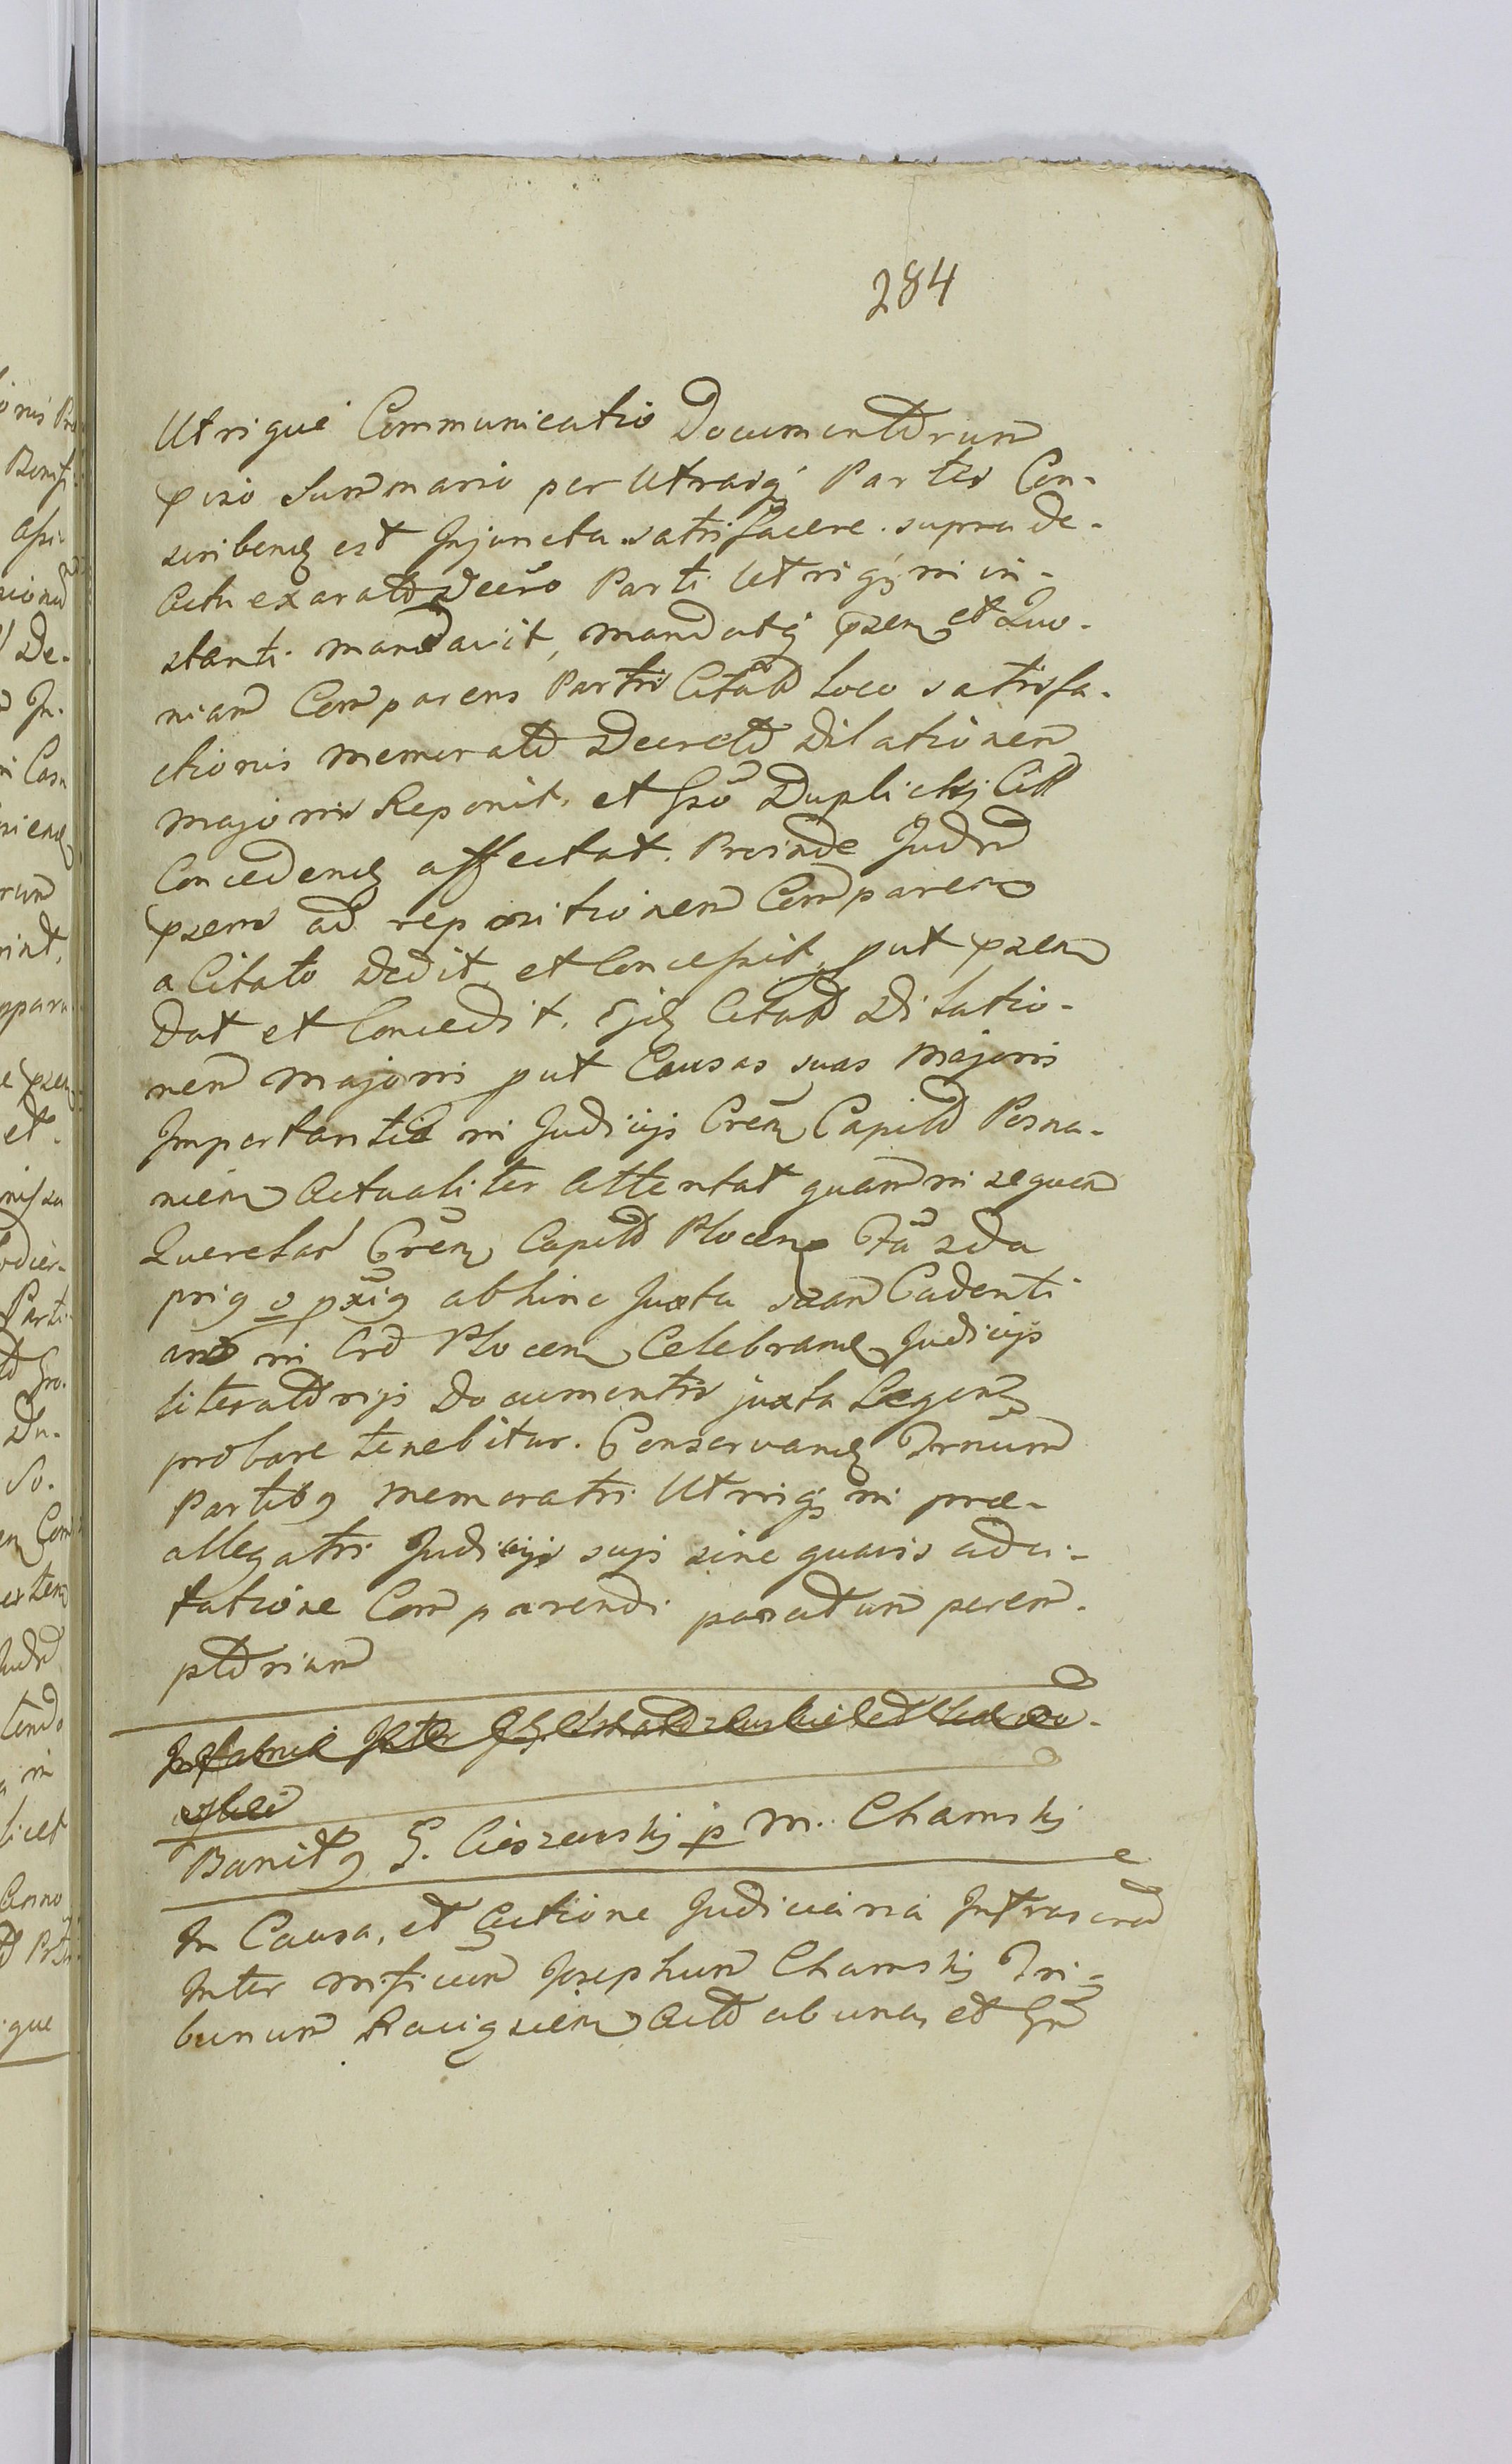 284
Utrique Communicatio Documentorum
pviso Summario per Utrasq Partes Con-
scribend est Injuncta. satisfacere. supra de-
Actu exarato Decro Parti Utriq in in-
stanti mandavit, mandatq pzen et Quo-
niam Comparens Partis Citat loco satisfa-
ctionis memorato Decreto Dilationem
majoris Reponit, et Duplici Citt
Concedend affectat. Proinde Judm
pzens ad repositionem Comparen
a Citato Dedit, et Concessit, put pzen
Dat et Concedit. Citato Dilatio-
nem majoris put Causas suas Majoris
Importantiæ in Judicijs Cren Capit Posna-
nien Actualiter Attentat quam in sequen
Querelas Gren Capit Plocen
abhinc Juxta Cadenti
in Plocen Celebrand Judicijs
literatorijs Documentis juxta Legem
probare tenebitur. Conservand Trnum
Partibg memoratis Utriqs in præ-
allegatis Judicijs sujs sine quavis adci-
tatione Comparendi paratum perem-
ptorium
Banitg G. Cieszewskj p M. Chamskj
In Causa, et Actione Judiciaria Infrascrad
Inter mificum Josephum Chamskj Tri-
bunum Racigzien Actd ab una, et Gm